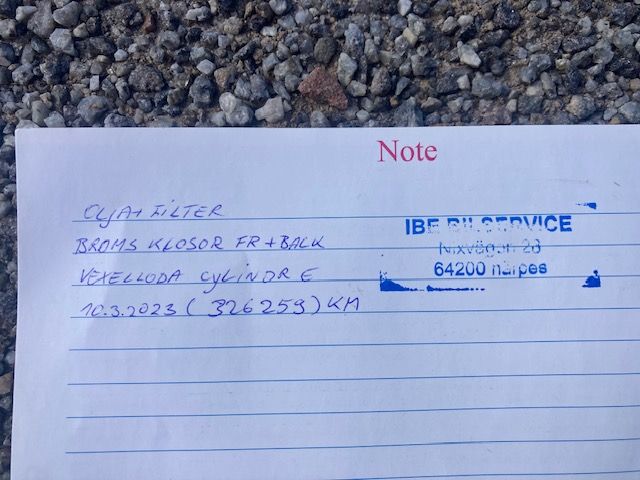 Note
OLJA+ FILTER
BROMS KLOSOR FR+BALK
VEXELLODA CYLINDRE
10.3.2023 (326259) KM
IBE BILSERVICE
28
64200 närpes